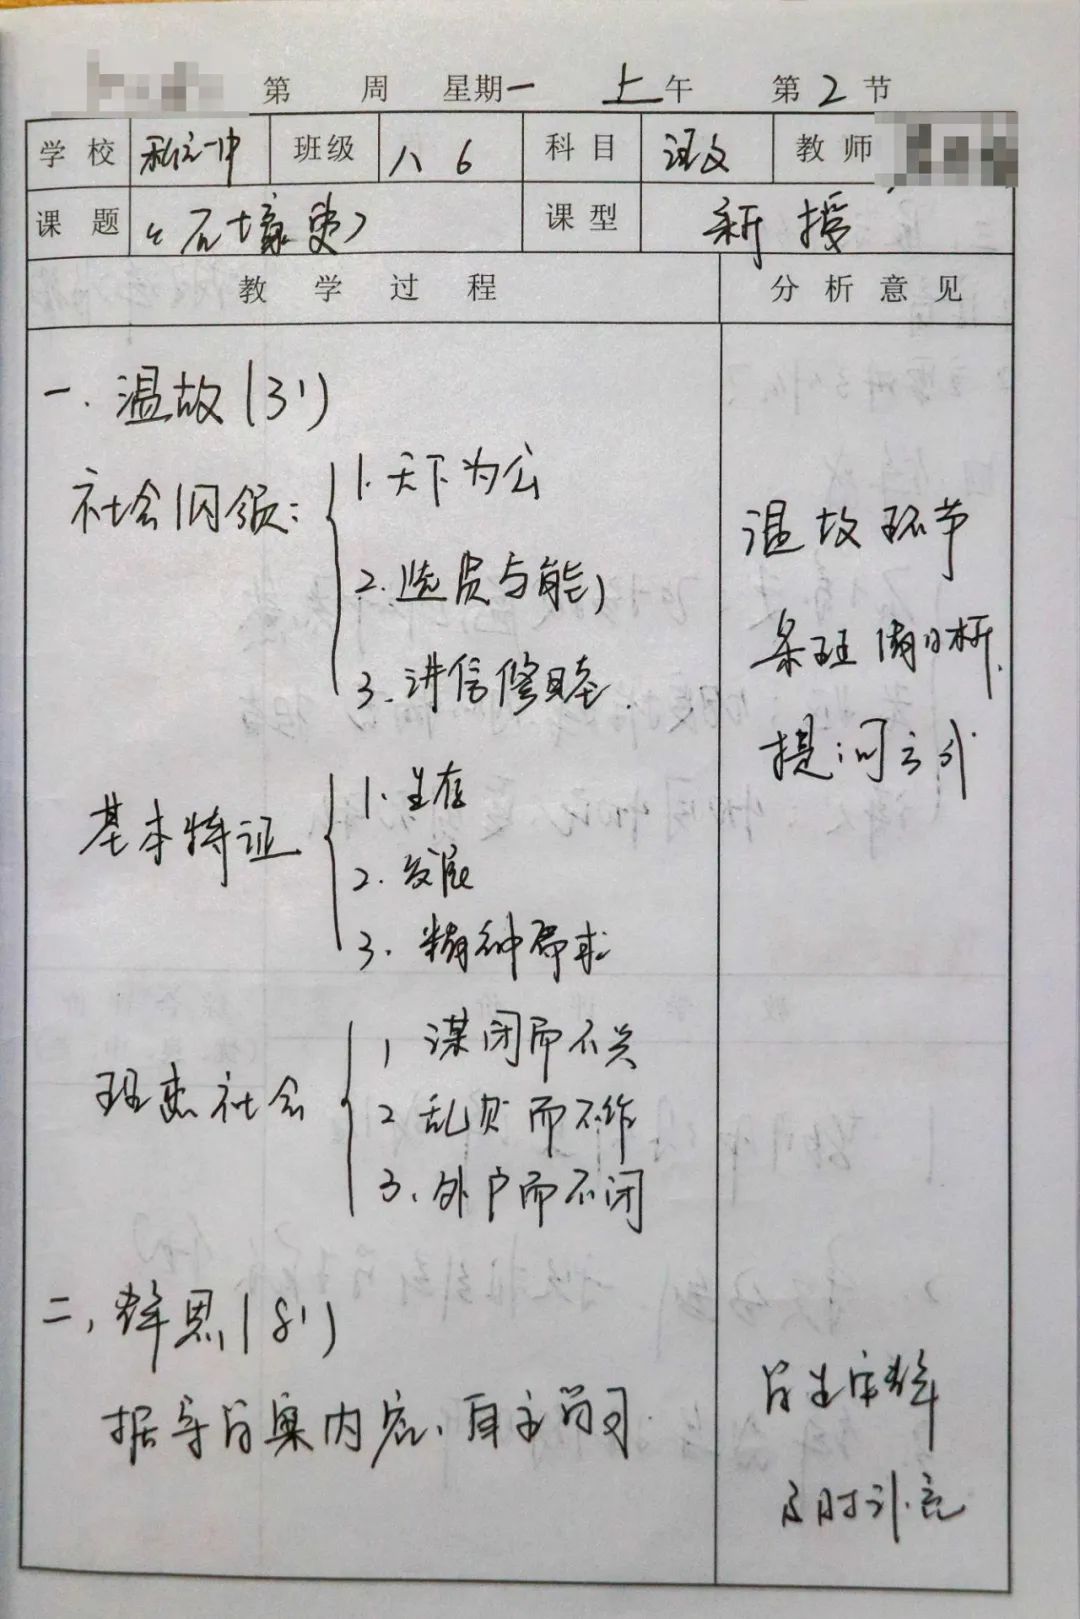 第 周 星期一 上午 第2节
学校 一中 班级 八6 科目 语文 教师
课题 《石壕吏》 课型 新授
教学过程 分析意见
一.温故(3')
社会纲领:
1.天下为公
2.选贤与能
3.讲信修睦.
基本特证
1.生存
2.发展
3.精神需求
理想社会
1谋闭而不兴
2乱贼而不作
3、外户而不闭
二,辨思(8')
据导学案内容、自主学习.
温故环节
条理清晰.
提问方式
学生
及时补充